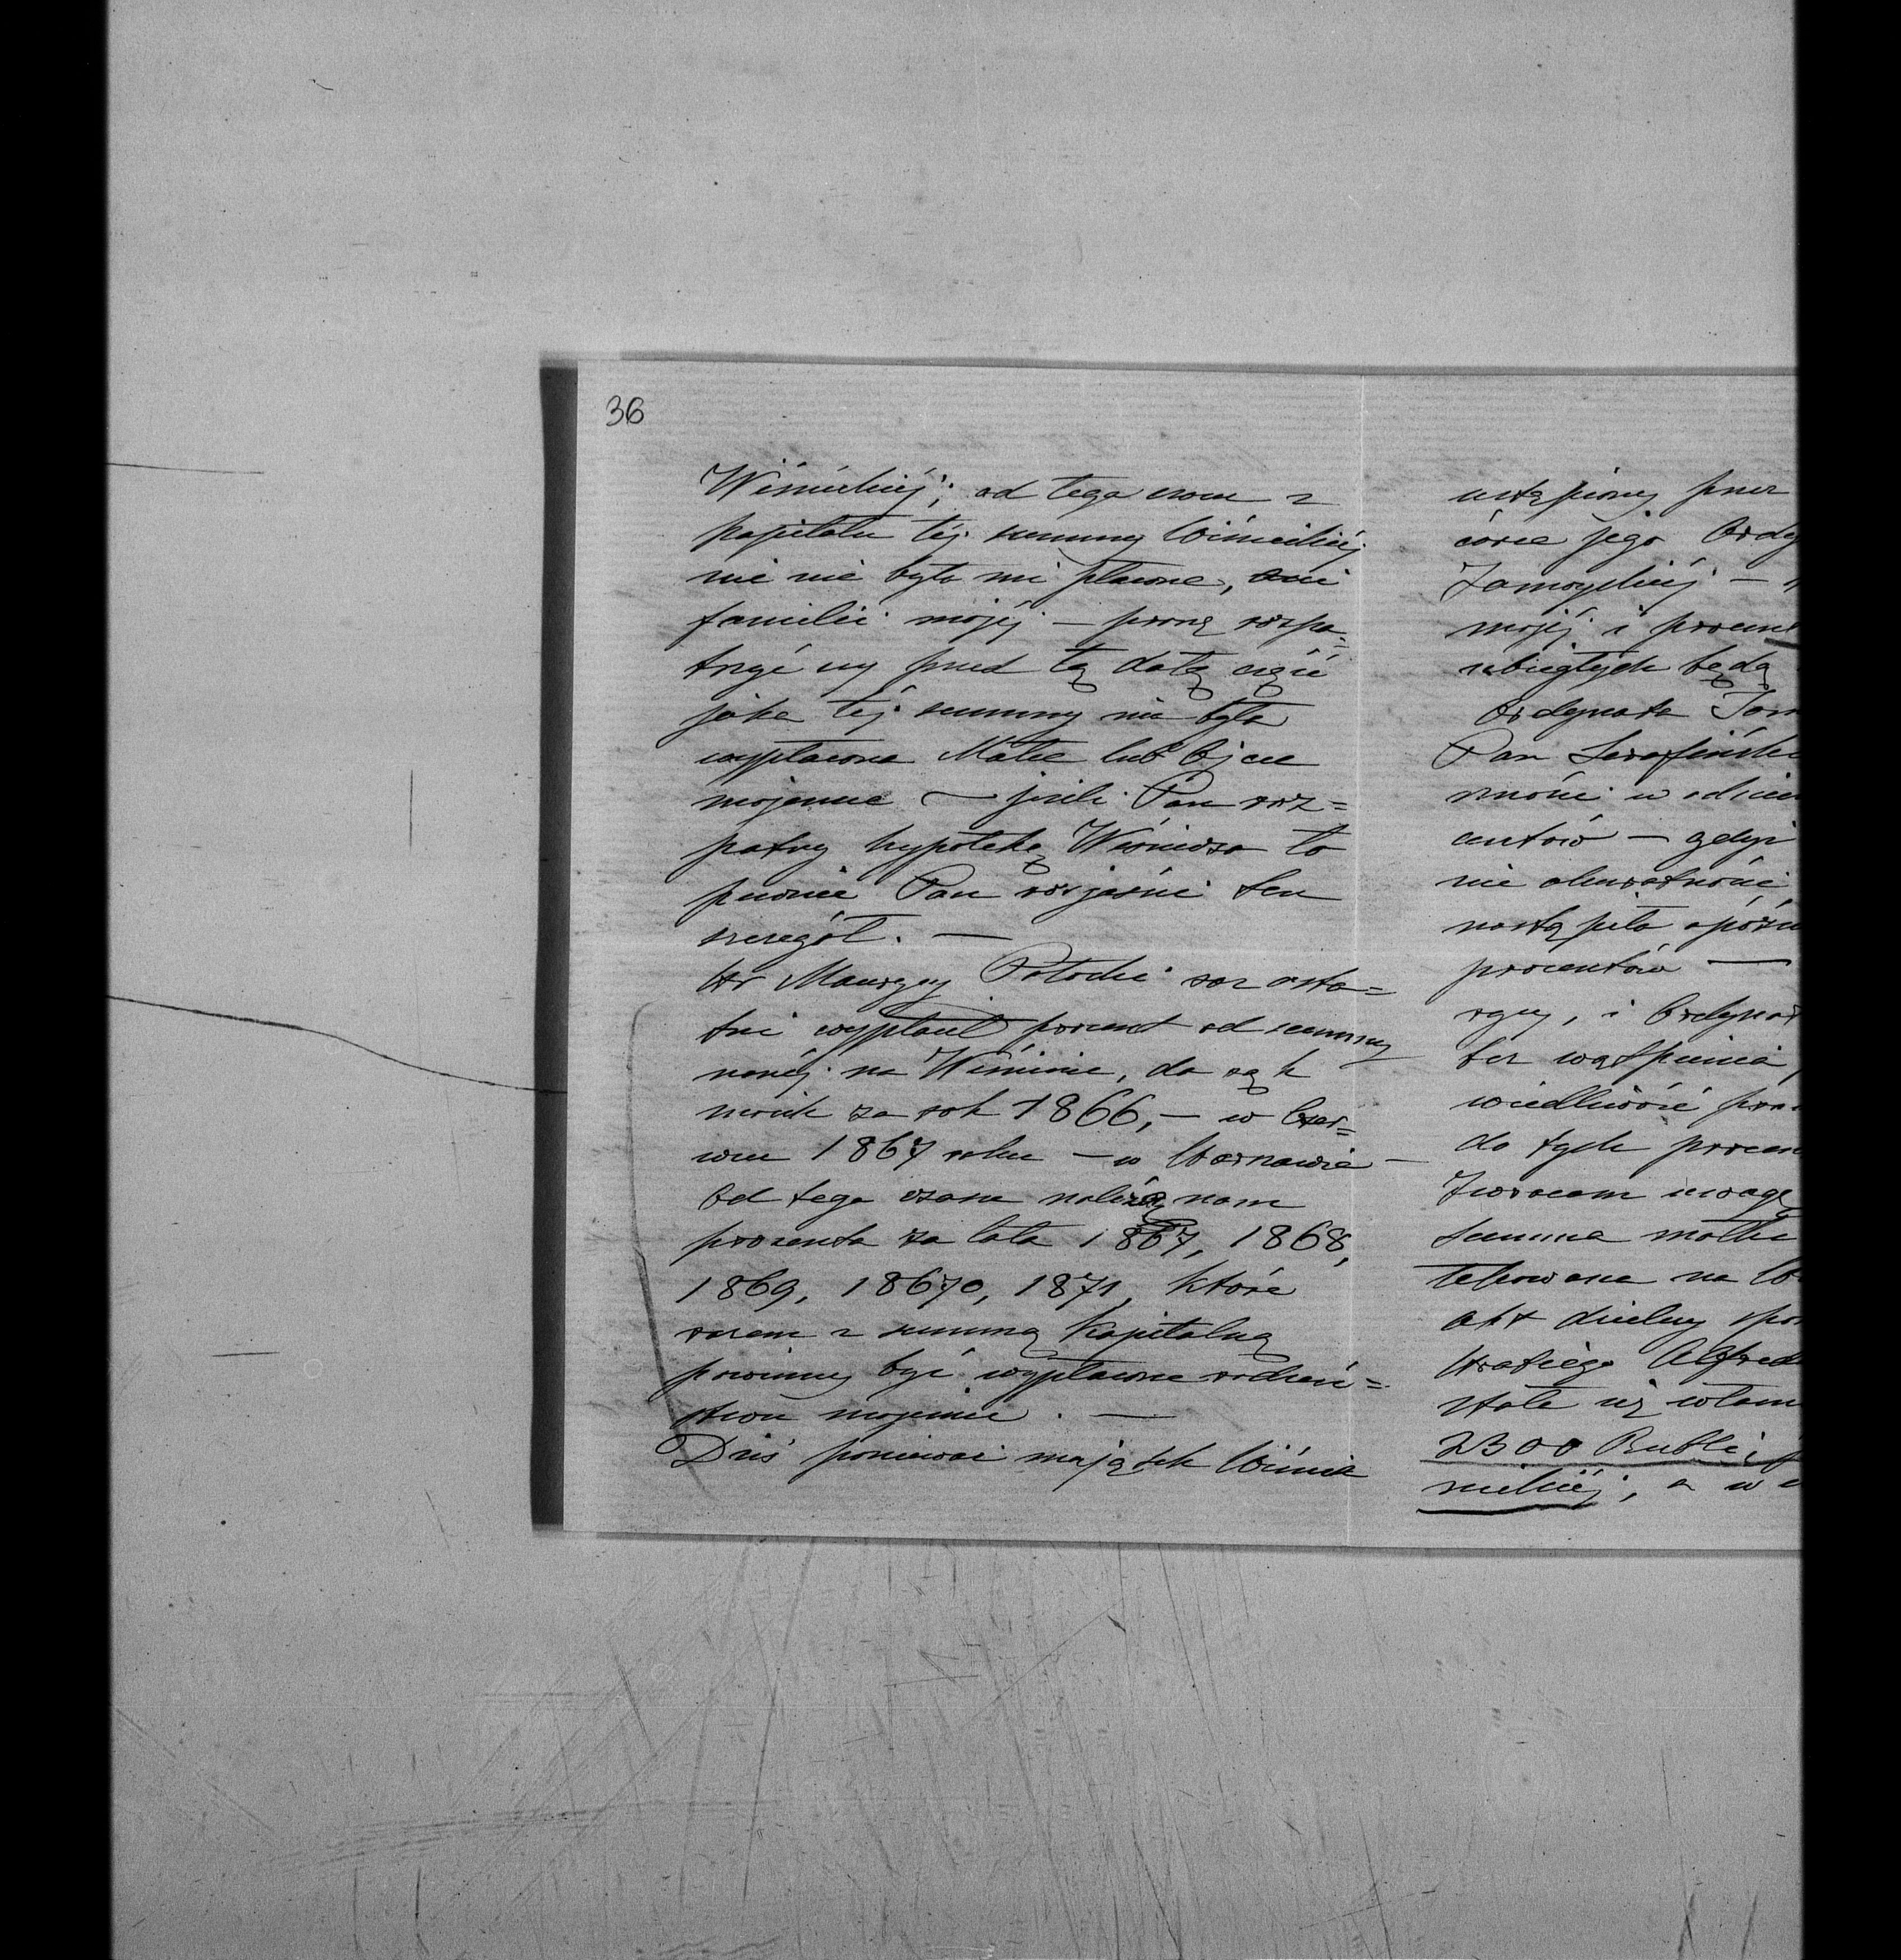 36
Wiśnickiéj; od tego czasu z
kapitału téj summy Wiśnickiéj
nic nie było mi płacone, ani
familii mojéj — proszę rozpa=
trzyć czy przed tą datą część
jaka téj summy nie była
wypłacona Matce lub Ojcu
mojemu — jeżeli Pan roz=
patrzy hypotekę Wiśnicza to
pewnie Pan rozjaśni ten
szczegół. —
Hr Maurycy Potocki raz osta=
tni wypłacił procent od summy
naszéj na Wiśniczu, do rąk
moich za rok 1866, — w Czer=
wcu 1867 roku — w Warszawie —
Od tego czasu należą nam
procenta za lata 1867, 1868,
1869, 18670, 1871, które
razem z summą Kapitalną
powinny być wypłacone rodzeń=
stwu mojemu. —
Dziś ponieważ majątek Wiśnicz
ustąpiony przez
córce jego Ordy
Zamoyskiéj —
mojéj i procent
ubiegłych będą
Ordynata Zam
Pan Serafiński
centów — gdyż
nie akuratności
nastąpiła opóźn
procentów —
rycy, i Ordynat
bez wątpienia
wiedliwość
do tych procen
Zwracam uwagę
summa matki
tekowana na W
akt dzielny
Hrabiego Alfreda
stała się własn
2300 Rubli,
snickiéj, a w